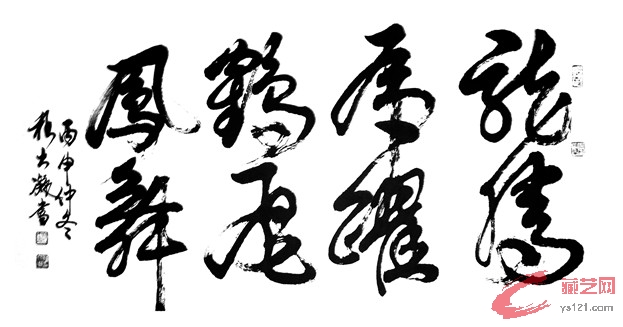 龍騰
虎躍
鶴飛
鳳舞
丙申仲冬
書
藏艺网
ys121.com